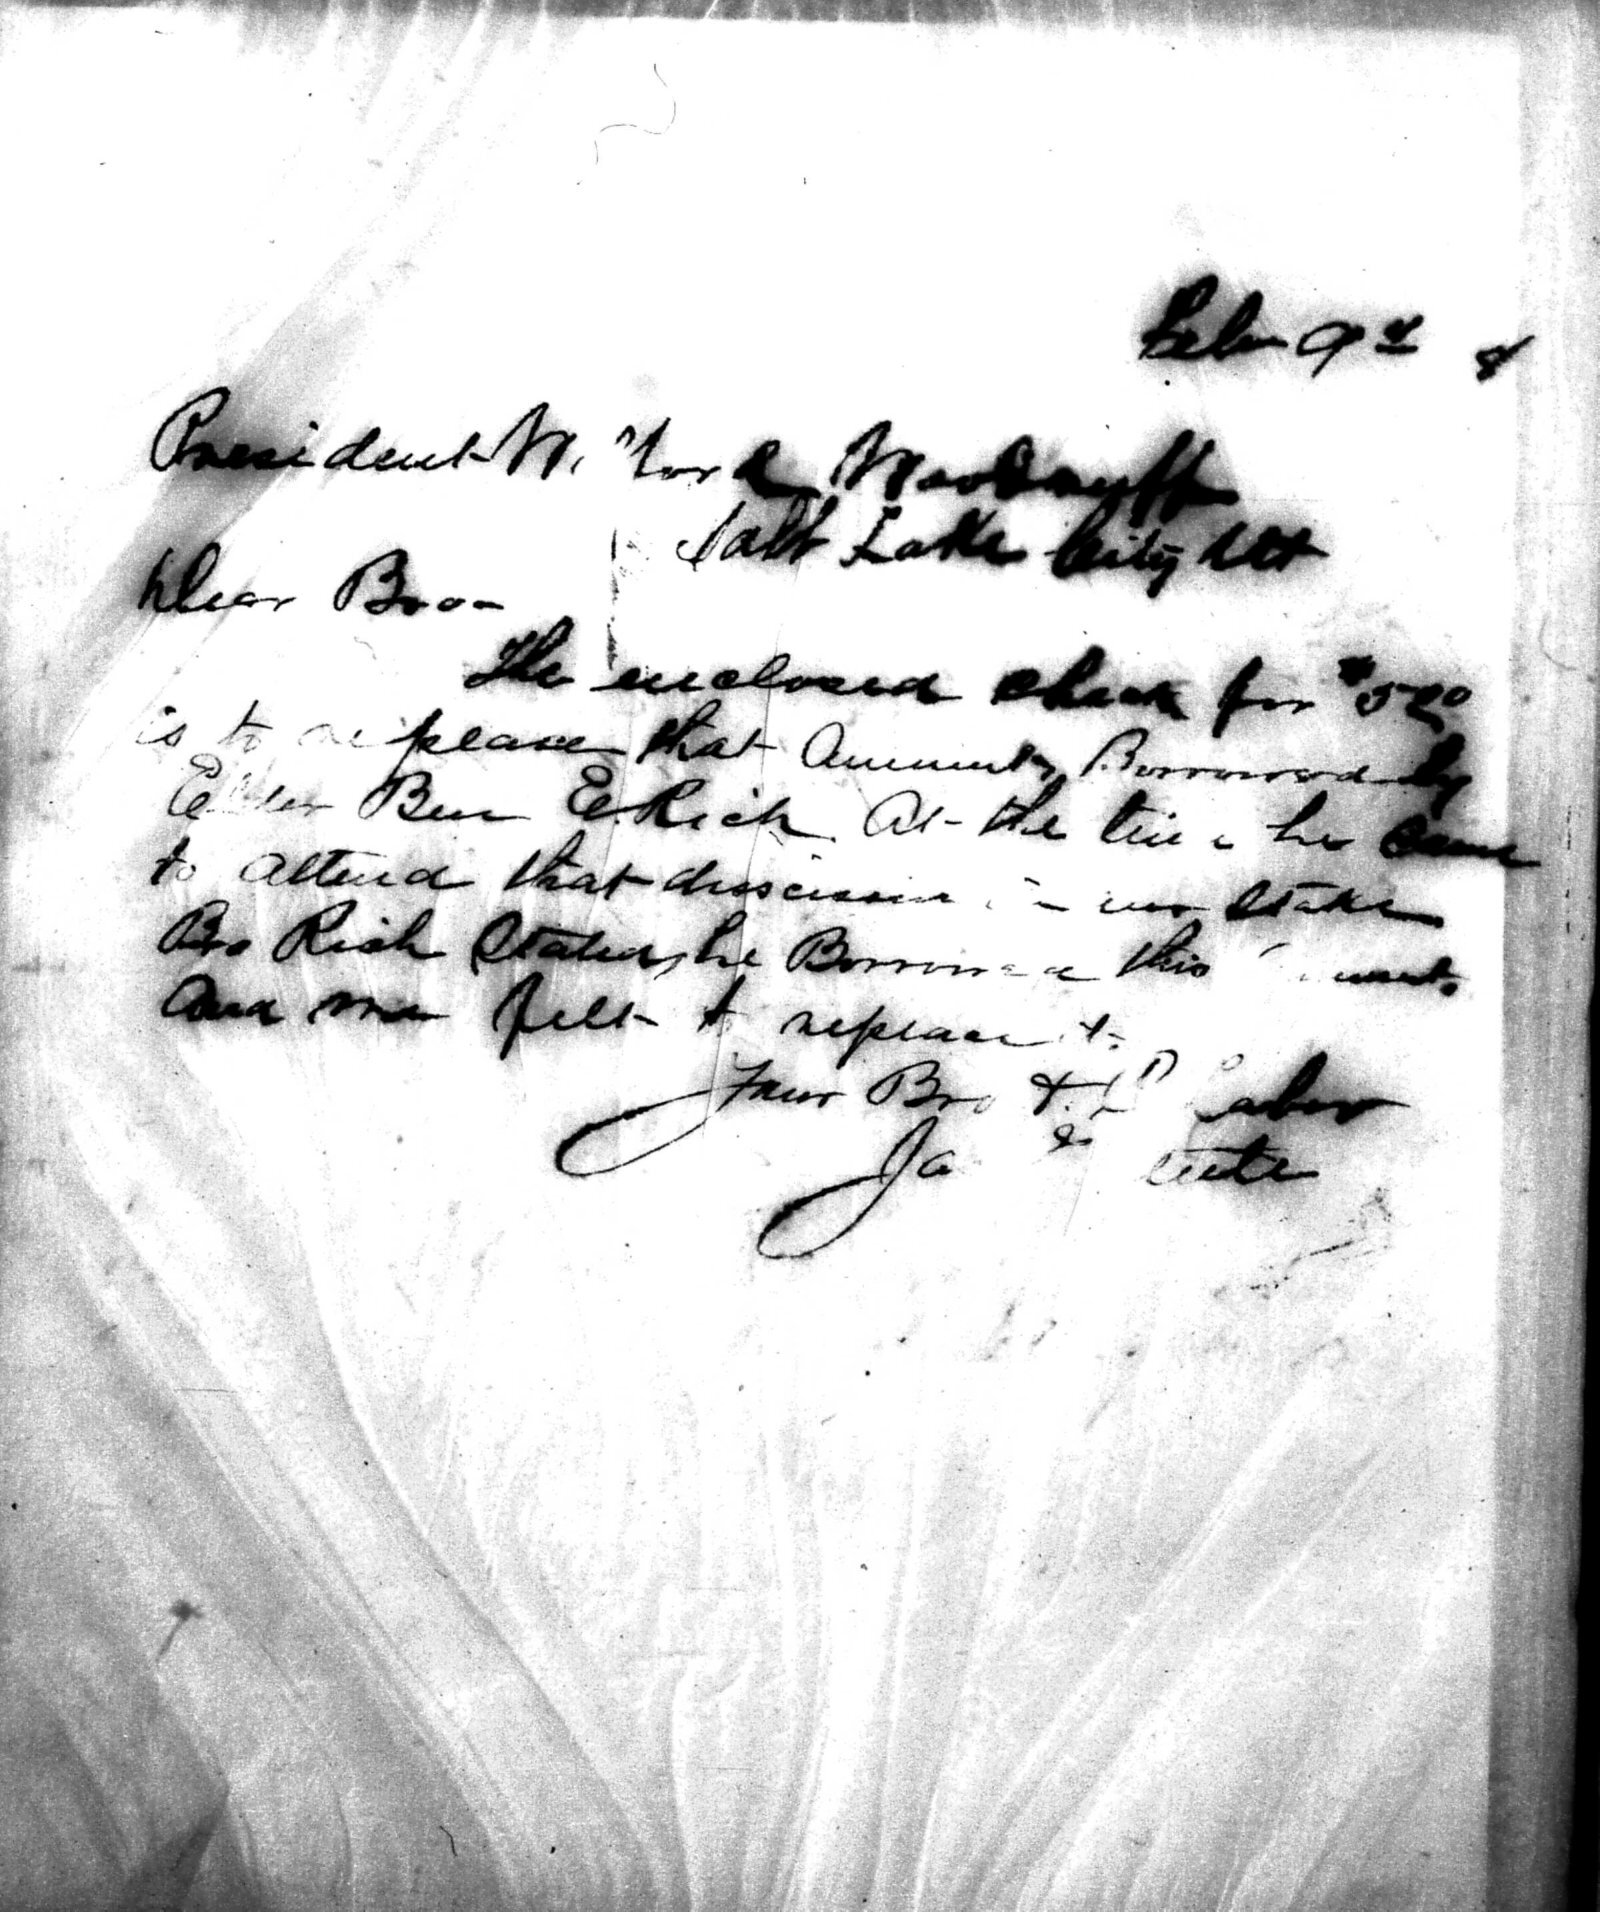 Feb 9th
President W. ford Woodruff
Salt Lake City Ut
Dear Bro-
The enclosed check for $5.00
is to replace that Ammount Borrowed by
Elder Ben E. Rich At the time he came
to attend that discussion in our Stake
Bro Rich States, he Borrowed this amount,
and we felt to replace it.
Your Bro & Labor
Ja